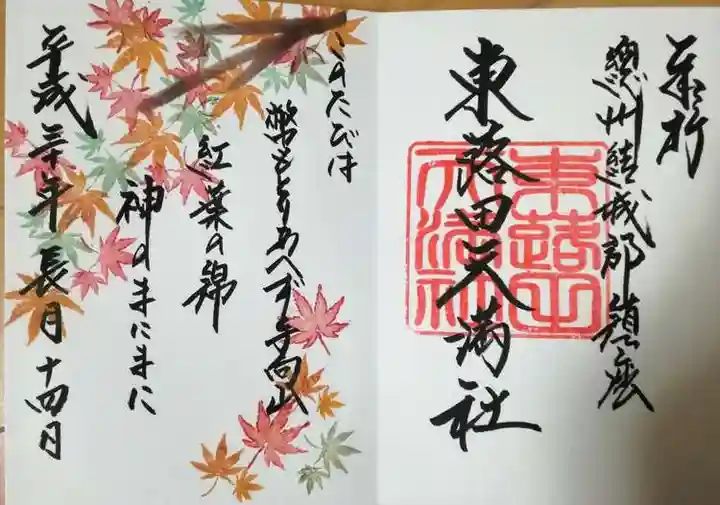 奉拝
總州結城郡鎮座
東蕗田天満社
このたびは
幣もとりあへず手向山
紅葉の錦
神のまにまに
平成三十年長月十四日